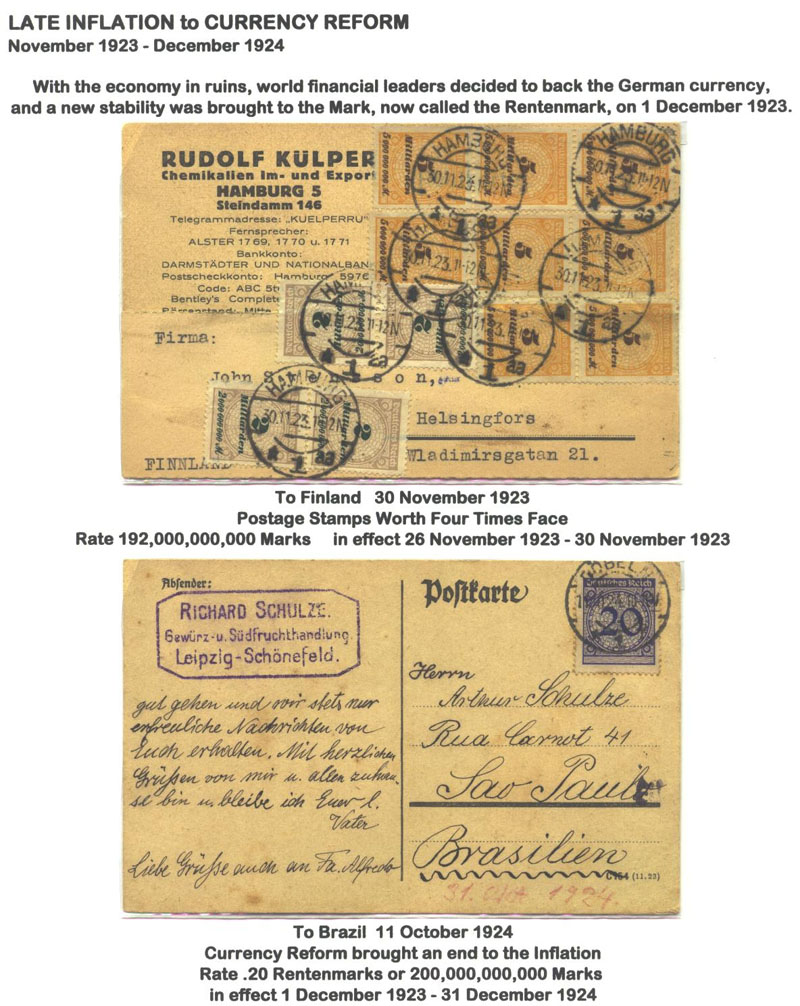 LATE INFLATION to CURRENCY REFORM
November 1923 - December 1924
With the economy in ruins, world financial leaders decided to back the German currency,
and a new stability was brought to the Mark, now called the Rentenmark, on 1 December 1923.
RUDOLF KÜLPER
Chemikalien Im- und Export
HAMBURG 5
Steindamm 146
Telegrammadresse: „KUELPERRU"
Fernsprecher:
ALSTER 1769, 1770 u. 1771
Bankkonto:
DARMSTÄDTER UND NATIONALBAN
Postscheckkonto: Hamburg 5976
Code: ABC 5t
Bentley's Complete
Firma:
John
son,
Helsingfors
FINNLAND
Wladimirsgatan 21.
HAMBURG
30.11.23.11-12N
1
5 Milliarden
2 Milliarden
To Finland 30 November 1923
Postage Stamps Worth Four Times Face
Rate 192,000,000,000 Marks in effect 26 November 1923 - 30 November 1923
Absender:
RICHARD SCHULZE.
Gewürz- u. Südfruchthandlung.
Leipzig-Schönefeld.
Postkarte
Deutsches Reich
20
Herrn
Arthur Schulze
Rua Carnot 41
Sao Paulo
Brasilien
C154 (11.23)
31. Okt 1924.
gut gehen und wir stets nur
erfreuliche Nachrichten von
Euch erhalten. Mit herzlichen
Grüßen von mir u. allen zuhau-
se bin u. bleibe ich Euer l.
Vater
Liebe Grüße auch an Fa. Alfredo
To Brazil 11 October 1924
Currency Reform brought an end to the Inflation
Rate .20 Rentenmarks or 200,000,000,000 Marks
in effect 1 December 1923 - 31 December 1924